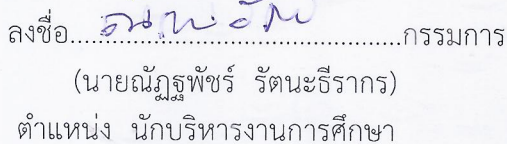 ลงชื่อ........................................กรรมการ
(นายณัฏฐพัชร์ รัตนะธีรากร)
ตำแหน่ง นักบริหารงานการศึกษา